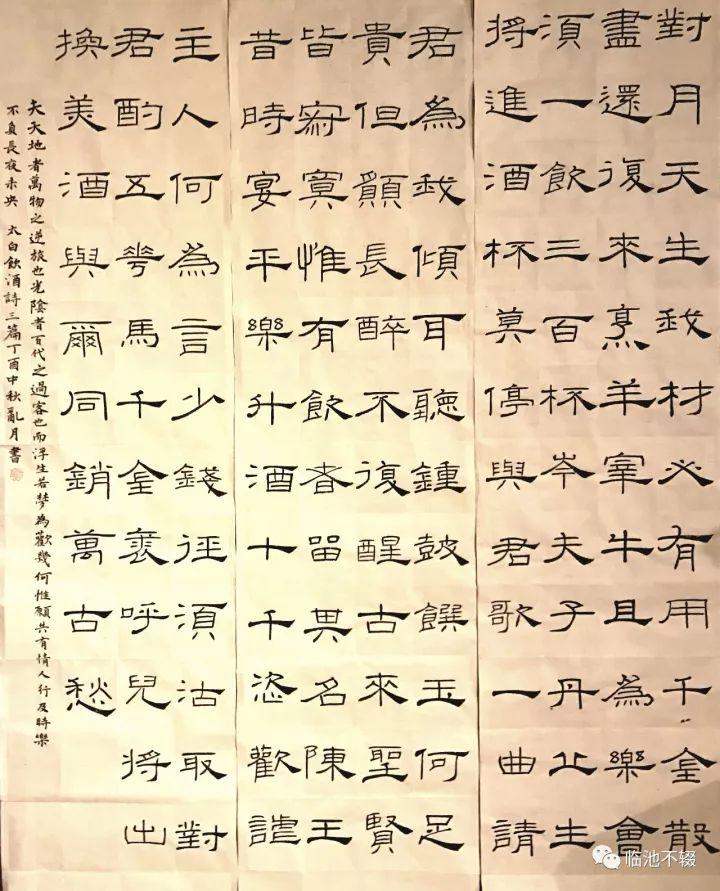 對月天生我材必有用千金散
盡還復來烹羊宰牛且為樂會
須一飲三百杯岑夫子丹丘生
將進酒杯莫停與君歌一曲請
君為我傾耳聽鍾鼓饌玉何足
貴但願長醉不復醒古來聖賢
皆寂寞惟有飲者留其名陳王
昔時宴平樂升酒十千恣歡謔
主人何為言少錢徑須沽取對
君酌五花馬千金裘呼兒將出
換美酒與爾同銷萬古愁
夫天地者萬物之逆旅也光陰者百代之過客也而浮生若夢為歡幾何惟願共有情人行及時樂
不負長夜未央 太白飲酒詩三篇丁酉中秋亂月書
临池不辍